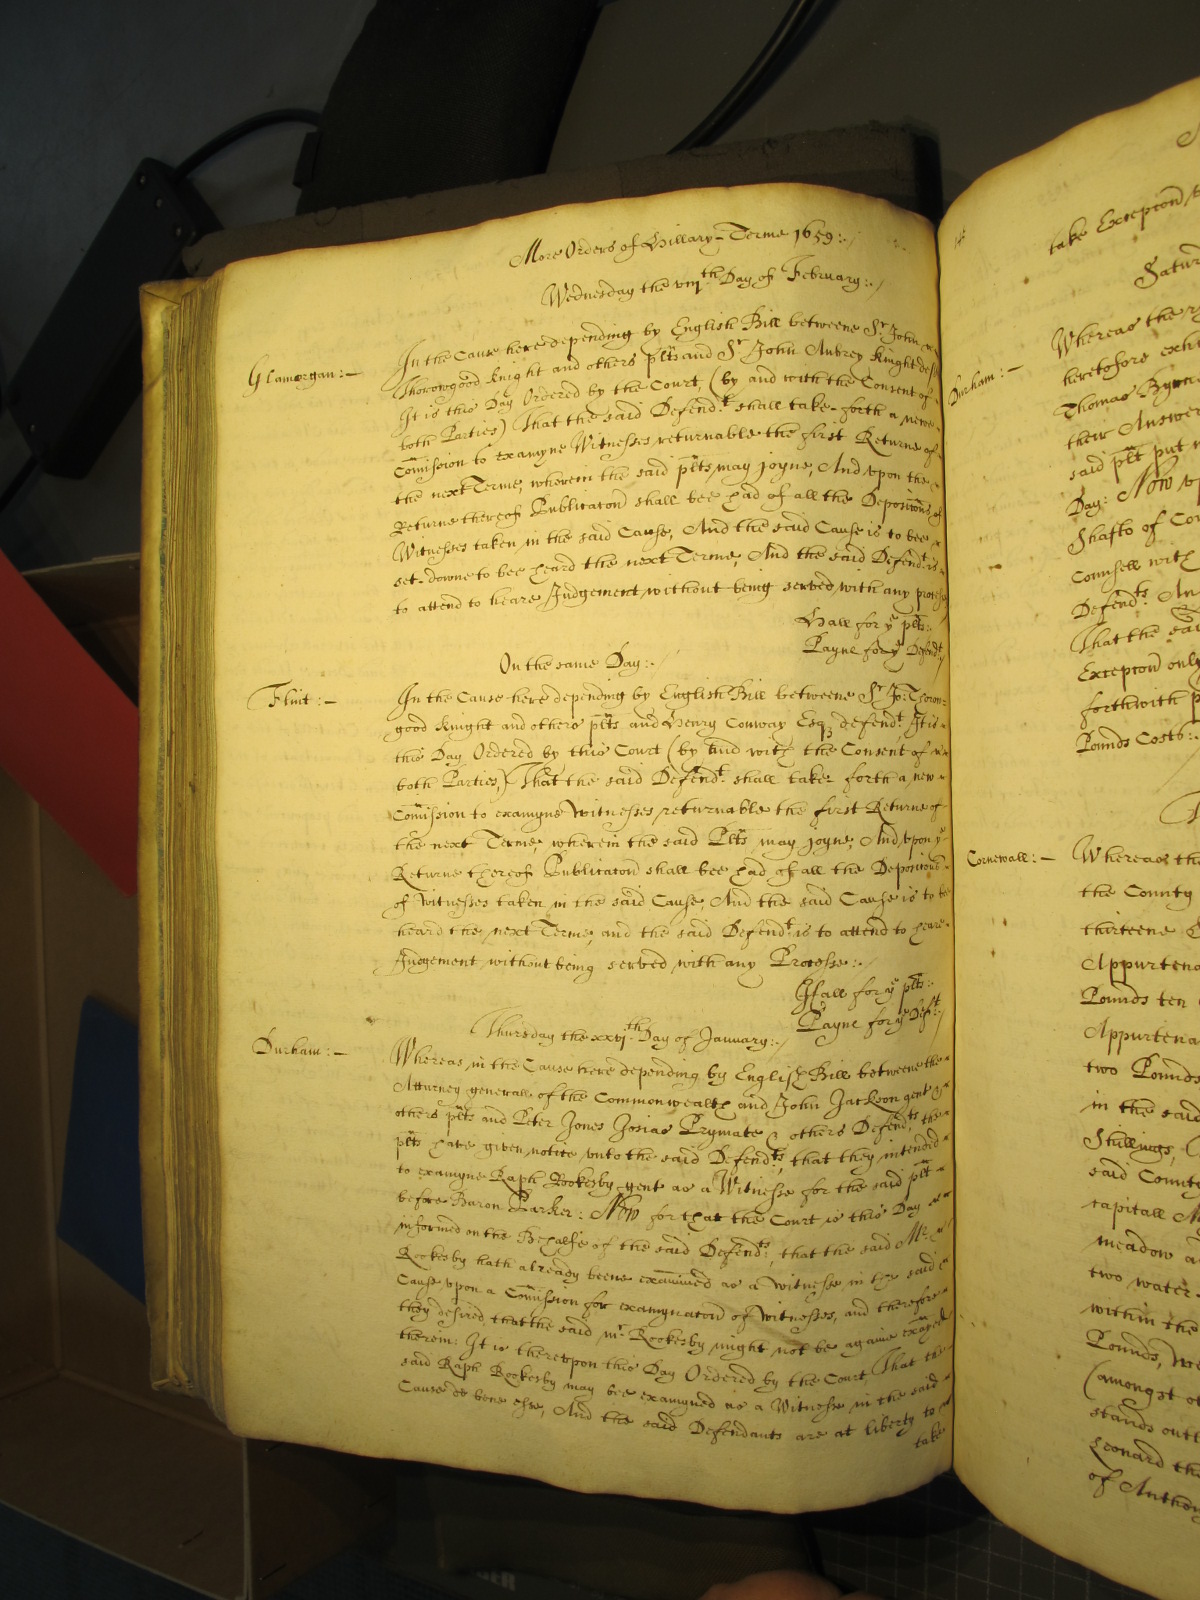 More Orders of Hillary Terme 1659:
Wednesday the viijth Day of February:
Glamorgan:
In the Cause here depending by English Bill betweene Sr John
Thorowgood Knight and others plts and Sr John Aubrey Knight deft
It is this Day Ordered by the Court (by and with the Consent of
both Parties) That the said Defendt shall take forth a newe
Comission to examyne Witnesses returnable the first Returne of
the next Terme, wherein the said plts may joyne, And vpon the
Returne thereof Publicacon shall bee had of all the Deposicons of
Witnesses taken in the said Cause, And the said Cause is to bee
set downe to bee heard the next Terme, And the said Defendt is
to attend to heare Judgement without being served with any processe
Hall for ye plts:
Payne for ye Defendt
On the same Day:
Flint:
In the Cause here depending by English Bill betweene Sr Jo: Thorow=
good Knight and others plts and Henry Conway Esqz defendt It is
this Day Ordered by this Court (by and with the Consent of
both Parties,) That the said Defendt shall take forth a new
Comission to examyne Witnesses returnable the first Returne of
the next Terme, wherein the said Plts may joyne, And vpon ye
Returne thereof Publicacon shall bee had of all the Deposicons
of Witnesses taken in the said Cause, And the said Cause is to be
heard the next Terme, and the said Defendt is to attend to heare
Judgement without being served with any Processe:
Hall for ye plts:
Payne for ye Deft
Thursday the xxvjth Day of January:
Durham:
Whereas in the Cause here depending by English Bill betweene the
Atturney generall of the Commonwealth and John Jackson gent &
others plts and Peter Jones Josias Prymate & others Defendts the
plts have given notice vnto the said Defendts, that they intended
to examyne Raph Rookesby gent as a Witnesse for the said plts
before Baron Parker: Now for that the Court is this Day
informed on the Behalfe of the said Defendts, that the said Mr
Rookesby hath already beene examined as a witnesse in the said
Cause vpon a Comission for examynacon of Witnesses, and therefore
they desired that the said mr Rookesby might not be againe exayed
therein: It is therevpon this Day Ordered by the Court That the
said Raph Rookesby may bee examyned as a Witnesse in the said
Cause de bene esse, And the said Defendants are at liberty to
take
take Excepcon
Satur
Durham:
Whereas the
heretofore exhi
Thomas
their Answer
said plt put
Day: Now vp
Shafto of Cou
Counsell with
Defendts An
That the said
Excepcon only
forthwith p
Pounds Costs:
Cornewall:
Whereas the
the County
thirteene
Appurtena
Pounds ten
Appurtena
two Pounds
in the said
Stullings,
said County
capitall M
meadow a
two water
within the
Pounds,
(amongst ot
stands out
Leonard the
of Anthony